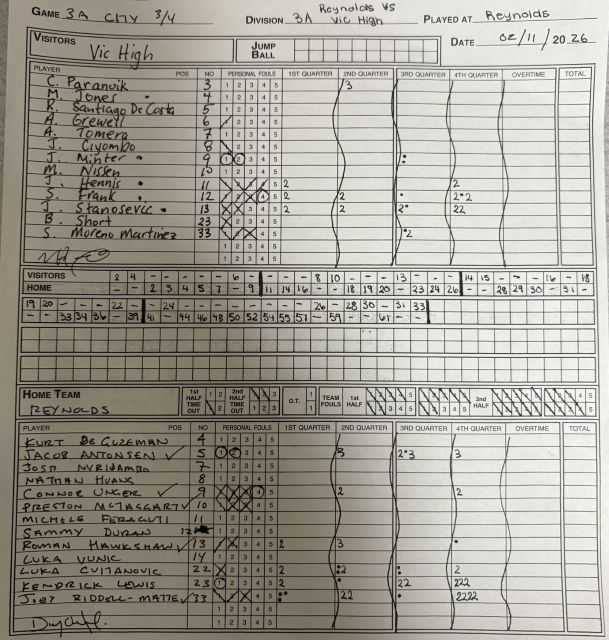 GAME 3A CITY 3/4 DIVISION 3A Reynolds VS Vic High PLAYED AT Reynolds
VISITORS Vic High JUMP BALL DATE 02/11/2026
PLAYER POS NO PERSONAL FOULS 1ST QUARTER 2ND QUARTER 3RD QUARTER 4TH QUARTER OVERTIME TOTAL
C. Paranoik 3 1 2 3 4 5 3
M. Jones 4 1 2 3 4 5
R. Santiago De Costa 5 1 2 3 4 5
A. Grewell 6 1 2 3 4 5
A. Tomera 7 1 2 3 4 5
J. Ciyombo 8 1 2 3 4 5
J. Minter • 9 1 2 3 4 5
M. Nissen 10 1 2 3 4 5
J. Hennis • 11 1 2 3 4 5 2 2
S. Frank • 12 1 2 3 4 5 2 2 • 2•2
J. Stanosevic • 13 1 2 3 4 5 2 2 2• 22
B. Short 23 1 2 3 4 5
S. Moreno Martinez 33 1 2 3 4 5 •2
1 2 3 4 5
VISITORS 2 4 - - - - - 6 - - - - 8 10 - - - 13 - - - 14 15 - - - 16 - 18
HOME - - 2 3 4 5 7 - 9 11 14 16 - - 18 19 20 - 23 24 26 - - 28 29 30 - 31 -
19 20 - - - 22 - - 24 - - - - - - - 26 - 28 30 - 31 33
- - 33 34 36 - 39 41 - 44 46 48 50 52 54 55 57 - 59 - - 61 - -
HOME TEAM REYNOLDS 1ST HALF TIME OUT 1 2 2ND HALF TIME OUT 1 2 3 O.T. 1 TEAM FOULS 1ST HALF 2ND HALF
PLAYER POS NO PERSONAL FOULS 1ST QUARTER 2ND QUARTER 3RD QUARTER 4TH QUARTER OVERTIME TOTAL
KURT DE GUZEMAN 4 1 2 3 4 5
JACOB ANTONSEN ✓ 5 1 2 3 4 5 3 2•3 3
JOSH NVRIJAMBA 7 1 2 3 4 5
NATHAN HUANG 8 1 2 3 4 5
CONNOR UNGER ✓ 9 1 2 3 4 5 2 2
PRESTON MCTAGGART ✓ 10 1 2 3 4 5
MICHELE FERAGUTI 11 1 2 3 4 5
SAMMY DURAN 12 1 2 3 4 5
ROMAN HAWKSHAW ✓ 13 1 2 3 4 5 2 3 •
LUKA VUNIC 14 1 2 3 4 5
LUKA CVITANOVIC 22 1 2 3 4 5 2 •2 • 2
KENDRICK LEWIS 23 1 2 3 4 5 2 22 222
JOEY RIDDELL-MATTE ✓ 33 1 2 3 4 5 22 • 2222
1 2 3 4 5